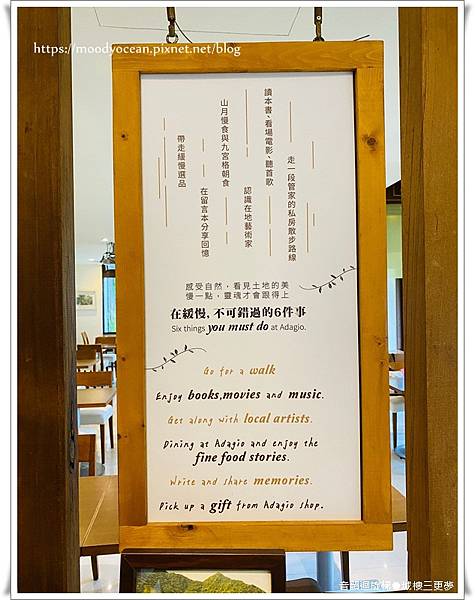 https://moodyoccean.pixnet.net/blog
走一段管家的私房散步路線
讀本書、看場電影、聽首歌
認識在地藝術家
山月慢食與九宮格朝食
在留言本分享回憶
帶走緩慢選品
感受自然，看見土地的美
慢一點，靈魂才會跟得上
在緩慢，不可錯過的6件事
Six things you must do at Adagio.
Go for a walk
Enjoy books,movies and music.
Get along with local artists.
Dining at Adagio and enjoy the
fine food stories.
Write and share memories.
Pick up a gift from Adagio shop.
音韻迴旋梯●城樓三更夢